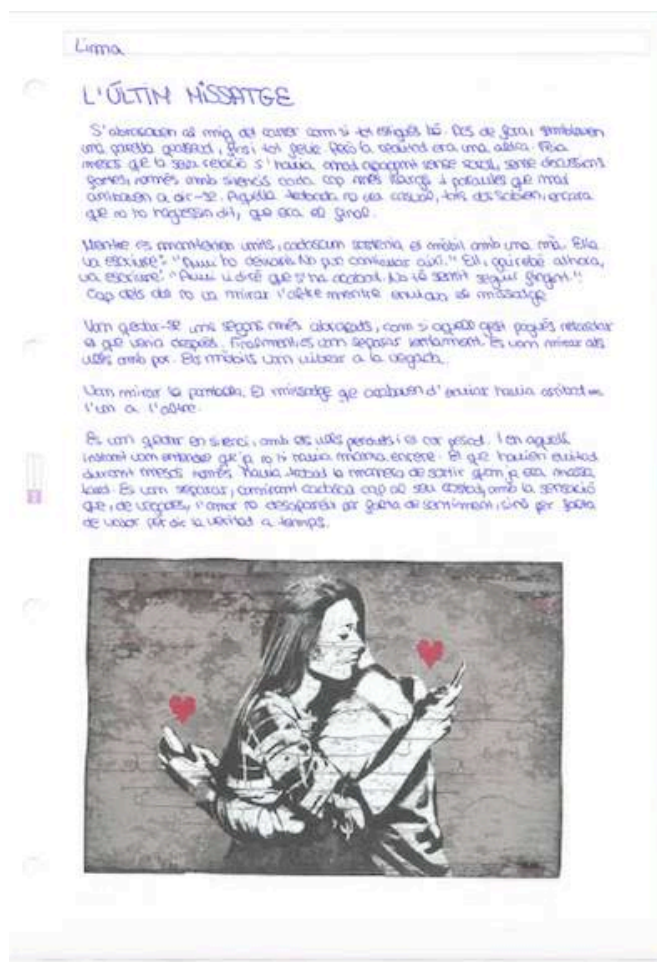 Lima
L'ÚLTIM MISSATGE
S'abraçaven al mig del carrer com si tot estigués bé. Des de fora, semblaven
una parella qualsevol, fins i tot feliç. Però la realitat era una altra. Feia
mesos que la seva relació s'havia anat apagant sense soroll, sense discussions
fortes, només amb silencis cada cop més llargs i paraules que mai
arribaven a dir-se. Aquella trobada no era casual, tots dos sabien, encara
que no ho haguessin dit, que era el final.
Mentre es mantenien units, cadascun sostenia el mòbil amb una mà. Ella
va escriure: "Avui ho deixaré. No puc continuar així." Ell, gairebé alhora,
va escriure: "Avui li diré que s'ha acabat. No té sentit seguir fingint."
Cap dels dos no va mirar l'altre mentre enviava el missatge
Van quedar-se uns segons més abraçats, com si aquell gest pogués retardar
el que venia després. Finalment, es van separar lentament. Es van mirar als
ulls amb por. Els mòbils van vibrar a la vegada.
Van mirar la pantalla. El missatge que acabaven d'enviar havia arribat
l'un a l'altre.
Es van quedar en silenci, amb els ulls perduts i el cor pesat. I en aquell
instant van entendre que ja no hi havia marxa enrere. El que havien evitat
durant mesos només havia trobat la manera de sortir quan ja era massa
tard. Es van separar, caminant cadascú cap al seu costat, amb la sensació
que, de vegades, l'amor no desapareix per falta de sentiment, sinó per falta
de valor per dir la veritat a temps.